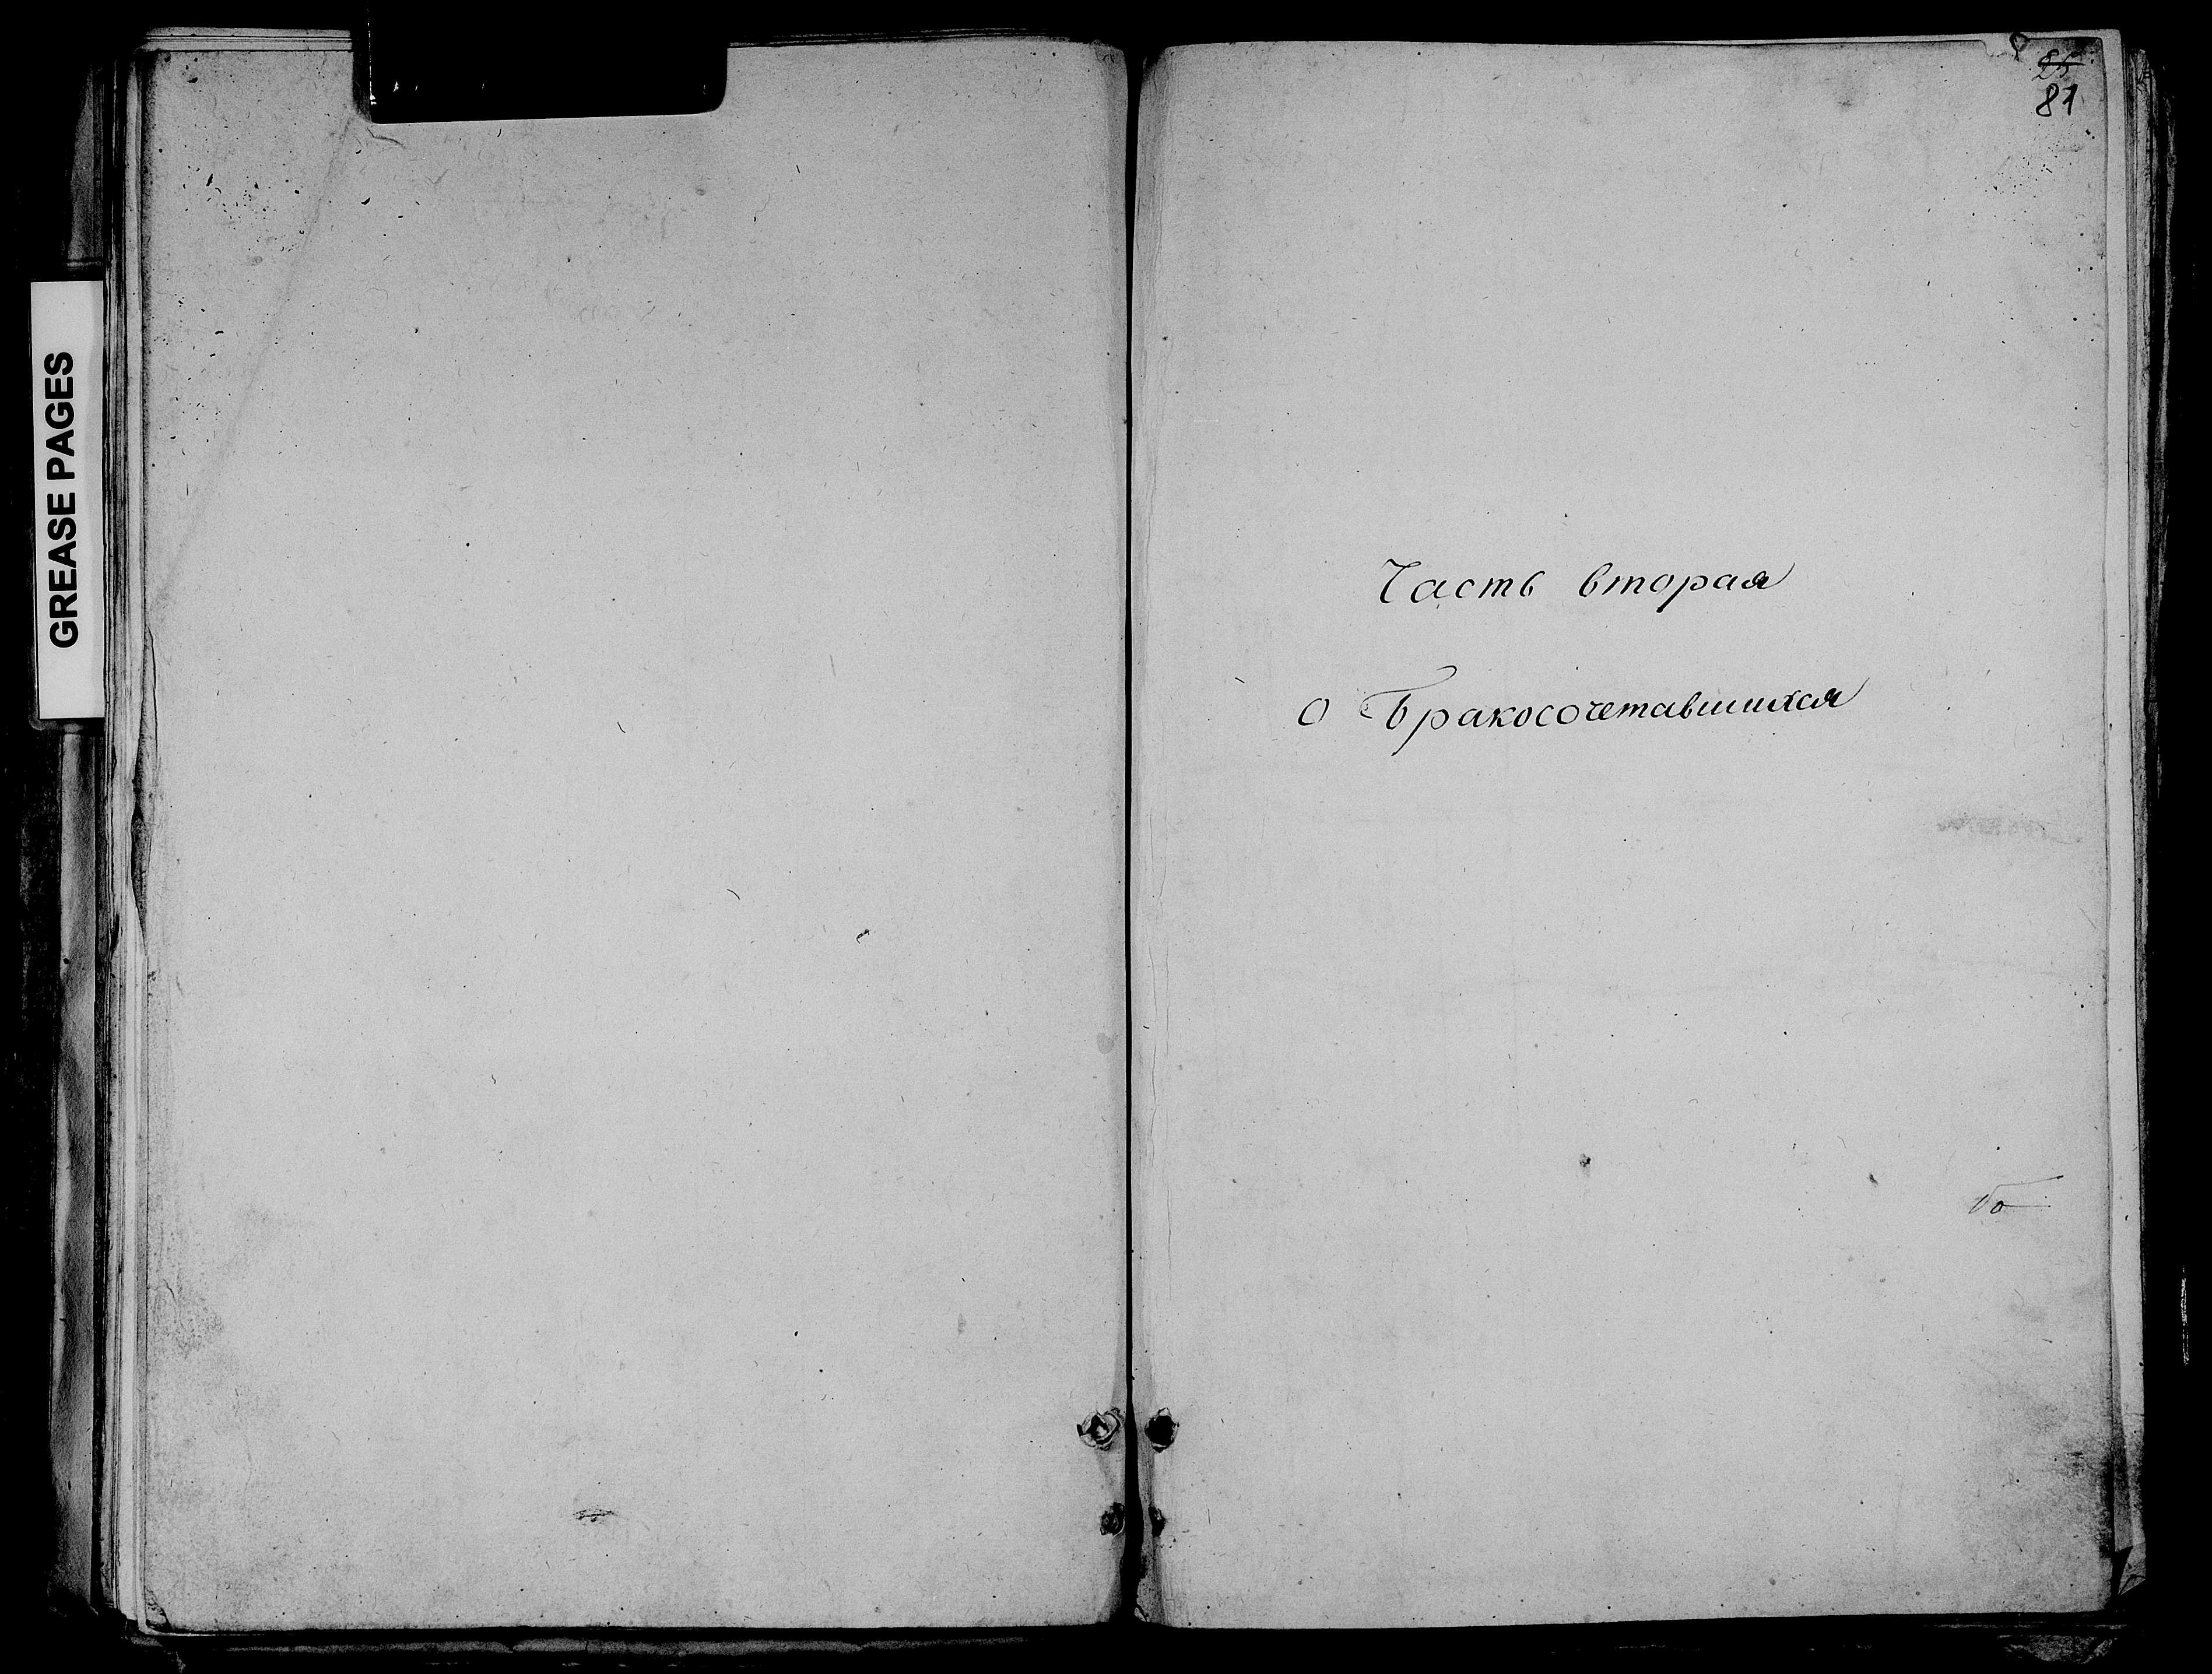 GREASE PAGES
81
Часть вторая
о Бракосочетавшихся